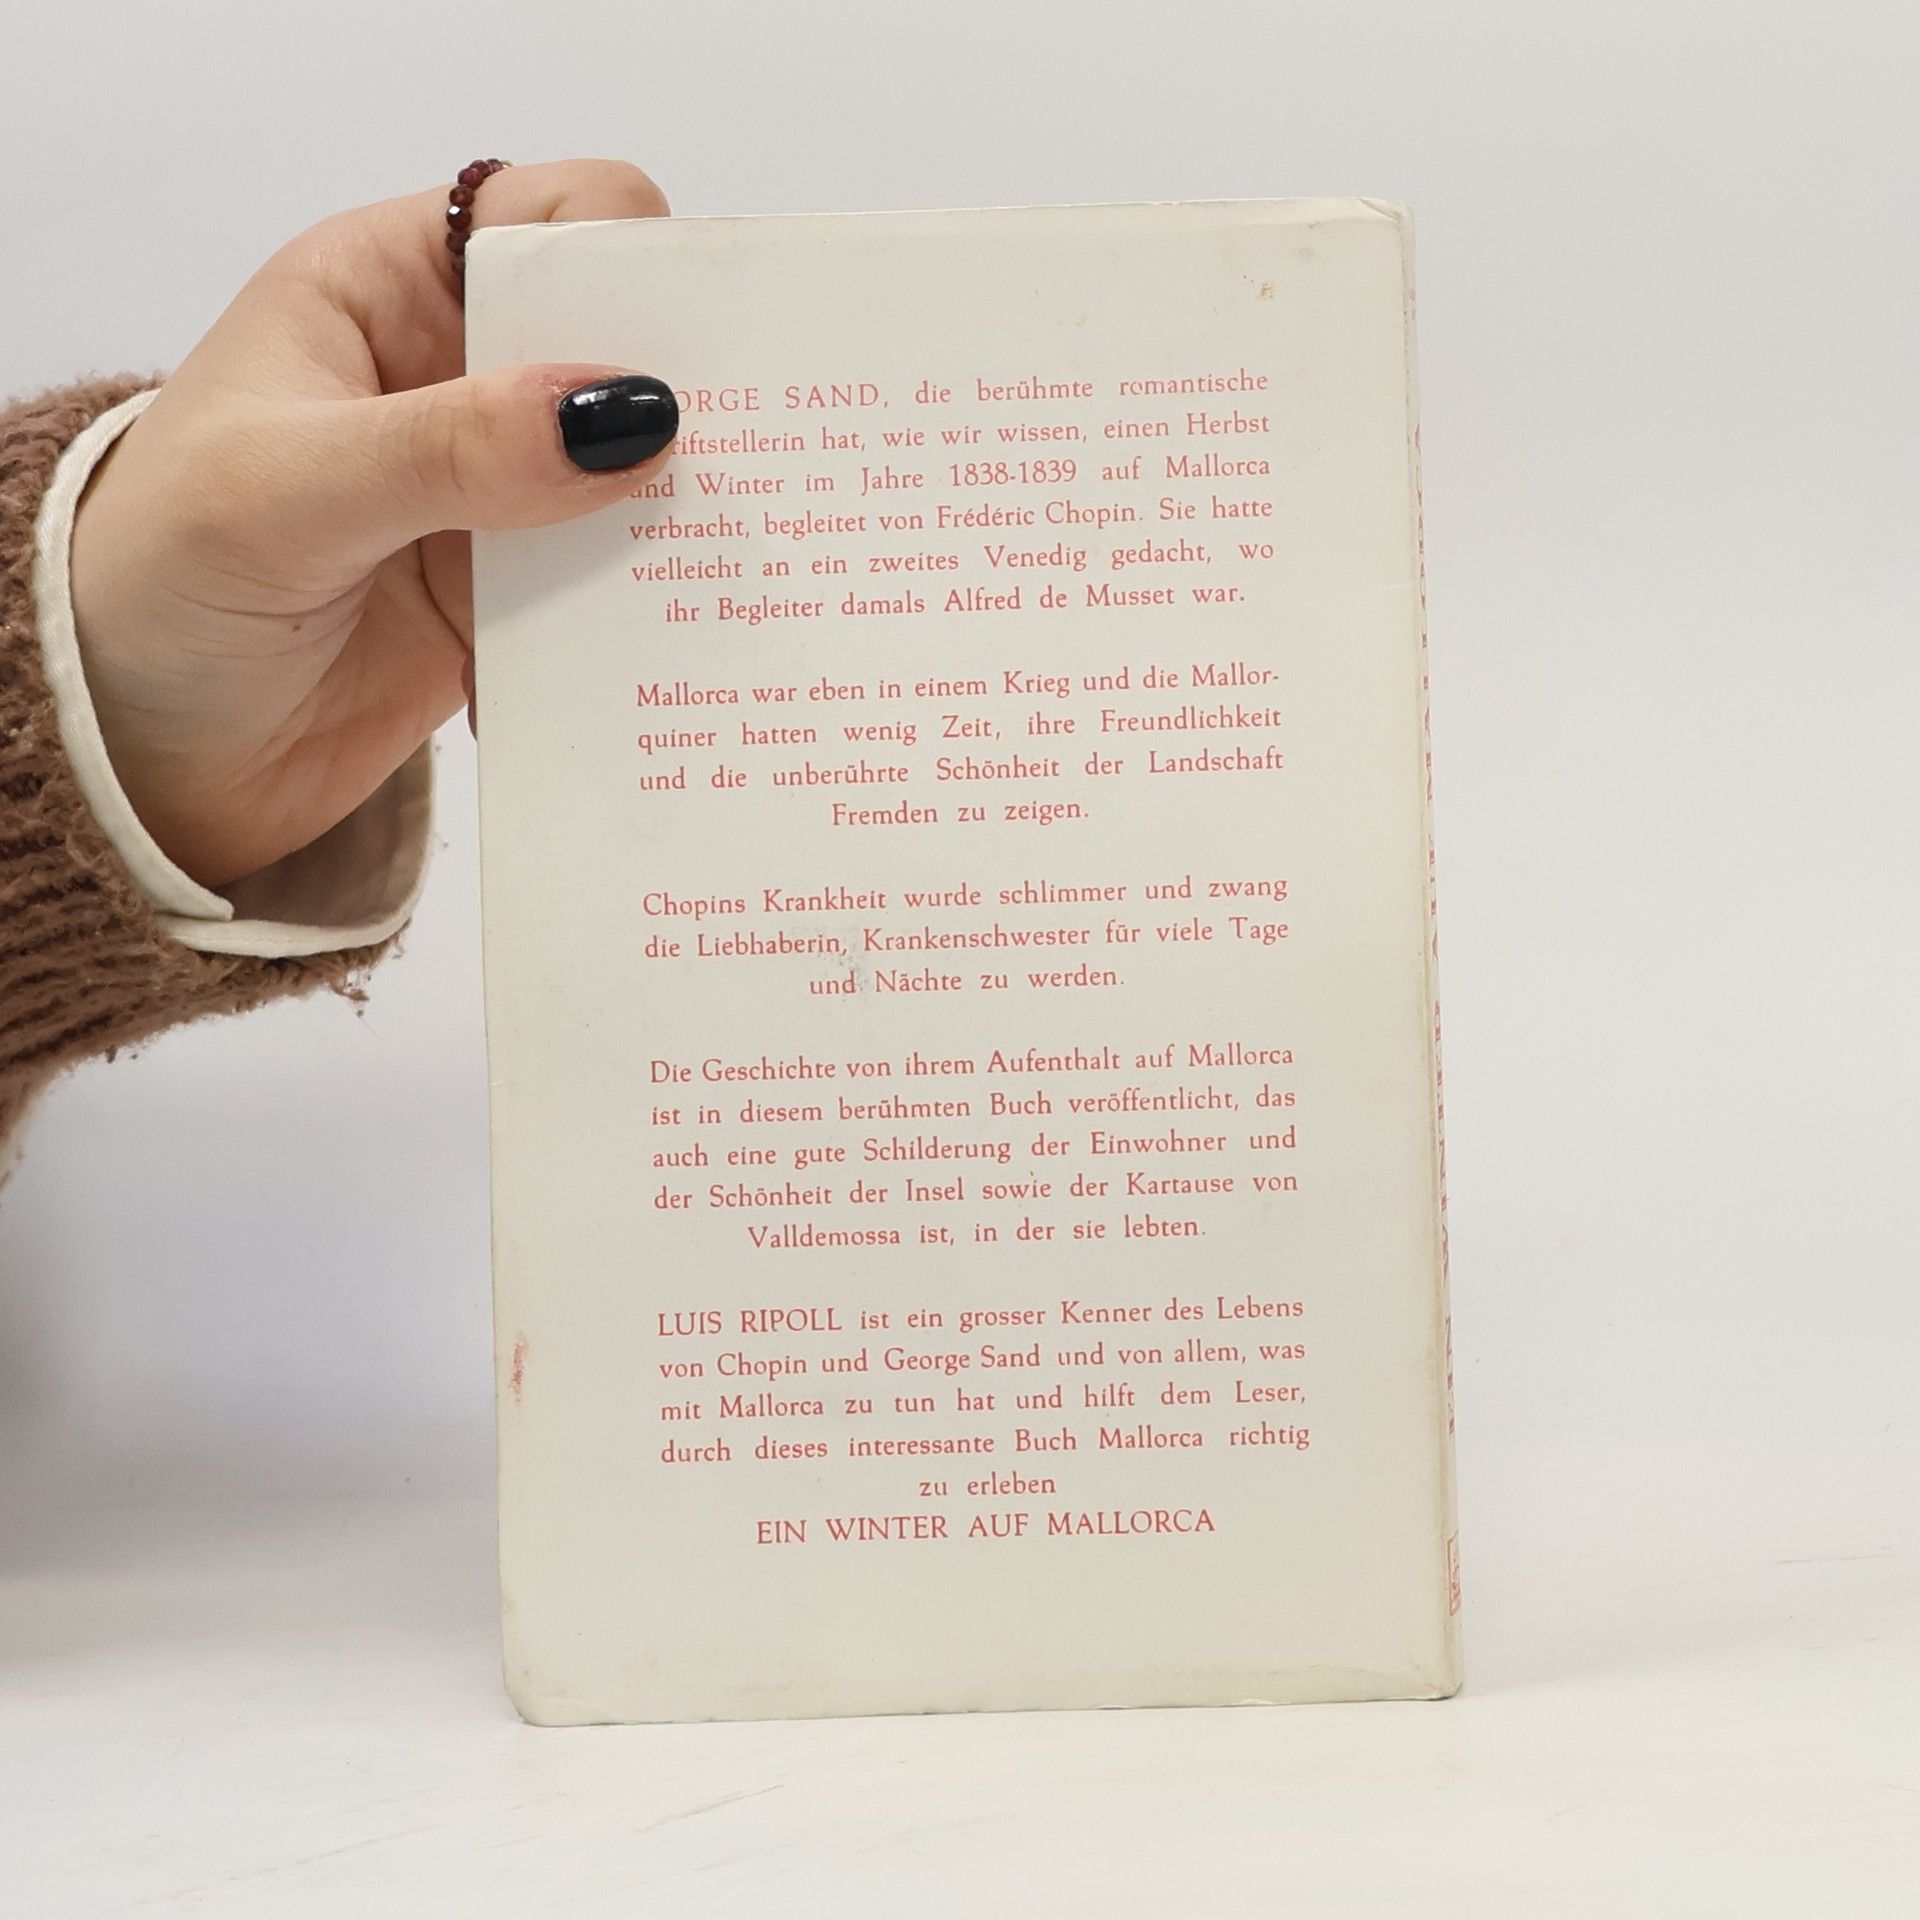 ORGE SAND, die berühmte romantische
riftstellerin hat, wie wir wissen, einen Herbst
und Winter im Jahre 1838-1839 auf Mallorca
verbracht, begleitet von Frédéric Chopin. Sie hatte
vielleicht an ein zweites Venedig gedacht, wo
ihr Begleiter damals Alfred de Musset war.
Mallorca war eben in einem Krieg und die Mallor-
quiner hatten wenig Zeit, ihre Freundlichkeit
und die unberührte Schönheit der Landschaft
Fremden zu zeigen.
Chopins Krankheit wurde schlimmer und zwang
die Liebhaberin, Krankenschwester für viele Tage
und Nächte zu werden.
Die Geschichte von ihrem Aufenthalt auf Mallorca
ist in diesem berühmten Buch veröffentlicht, das
auch eine gute Schilderung der Einwohner und
der Schönheit der Insel sowie der Kartause von
Valldemossa ist, in der sie lebten.
LUIS RIPOLL ist ein grosser Kenner des Lebens
von Chopin und George Sand und von allem, was
mit Mallorca zu tun hat und hilft dem Leser,
durch dieses interessante Buch Mallorca richtig
zu erleben
EIN WINTER AUF MALLORCA
EIN WINTER AUF MALLORCA